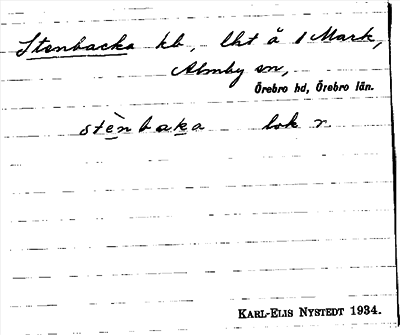 Stenbacka kb, lht å 1 Mark,
Almby sn,
Örebro hd, Örebro län.
stènbaka lok r.
KARL-ELIS NYSTEDT 1934.